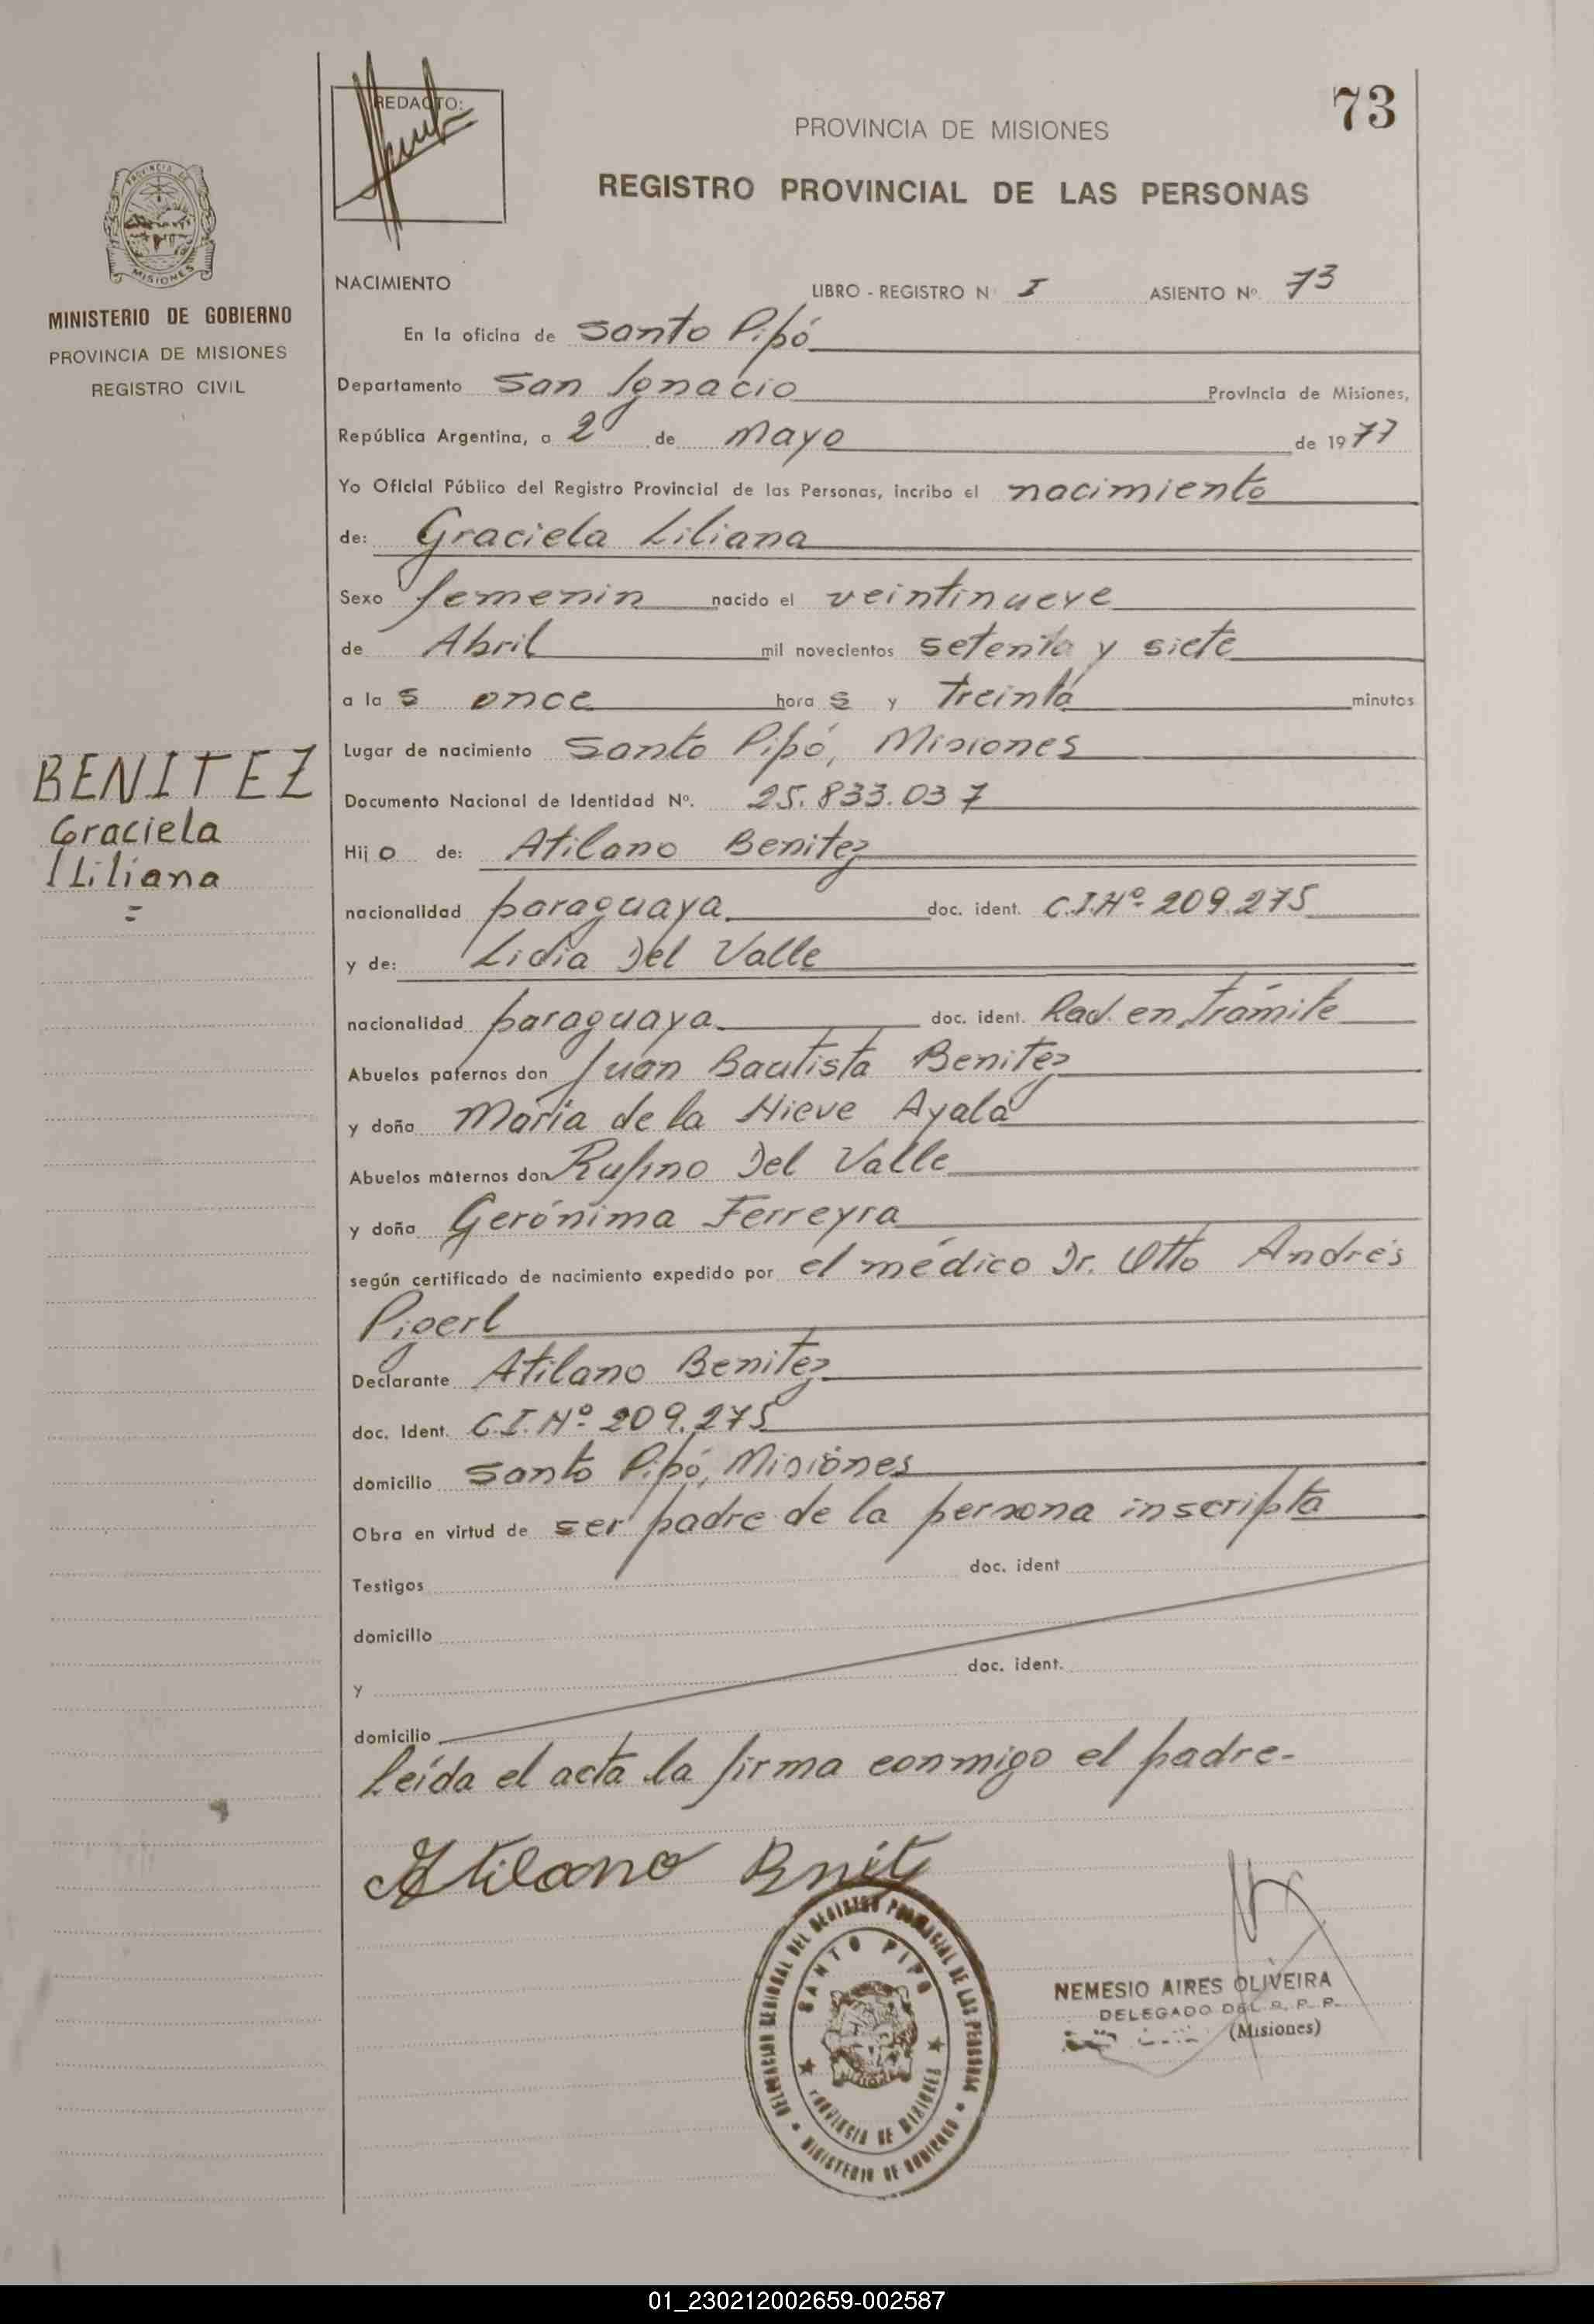 REDACTO:
73
PROVINCIA DE MISIONES
REGISTRO PROVINCIAL DE LAS PERSONAS
PROVINCIA DE
MISIONES
MINISTERIO DE GOBIERNO
PROVINCIA DE MISIONES
REGISTRO CIVIL
NACIMIENTO LIBRO - REGISTRO N I ASIENTO Nº 73
En la oficina de Santo Pipó
Departamento San Ignacio Provincia de Misiones,
República Argentina, a 2 de Mayo de 1977
Yo Oficial Público del Registro Provincial de las Personas, incribo el nacimiento
de: Graciela Liliana
Sexo femenin nacido el veintinueve
de Abril mil novecientos setenta y siete
a la s once hora s y treinta minutos
Lugar de nacimiento Santo Pipó, Misiones
BENITEZ
Graciela
Liliana
Documento Nacional de Identidad Nº. 25.833.037
Hij o de: Atilano Benitez
nacionalidad paraguaya doc. ident. C.I.Nº 209.275
y de: Lidia Del Valle
nacionalidad paraguaya doc. ident. Rad. en trámite
Abuelos paternos don Juan Bautista Benitez
y doña María de la Nieve Ayala
Abuelos maternos don Rufino Del Valle
y doña Gerónima Ferreyra
según certificado de nacimiento expedido por el médico Dr. Otto Andrés
Pigerl
Declarante Atilano Benitez
doc. Ident. C.I.Nº 209.275
domicilio Santo Pipó, Misiones
Obra en virtud de ser padre de la persona inscripta
Testigos doc. ident
domicilio
y doc. ident.
domicilio
leída el acta la firma conmigo el padre-
Atilano Bnitz
DELEGACION REGIONAL DEL REGISTRO PROVINCIAL DE LAS PERSONAS
SANTO PIPO
PROVINCIA DE MISIONES
MINISTERIO DE GOBIERNO
NEMESIO AIRES OLIVEIRA
DELEGADO DEL R. P. P.
(Misiones)
01_230212002659-002587